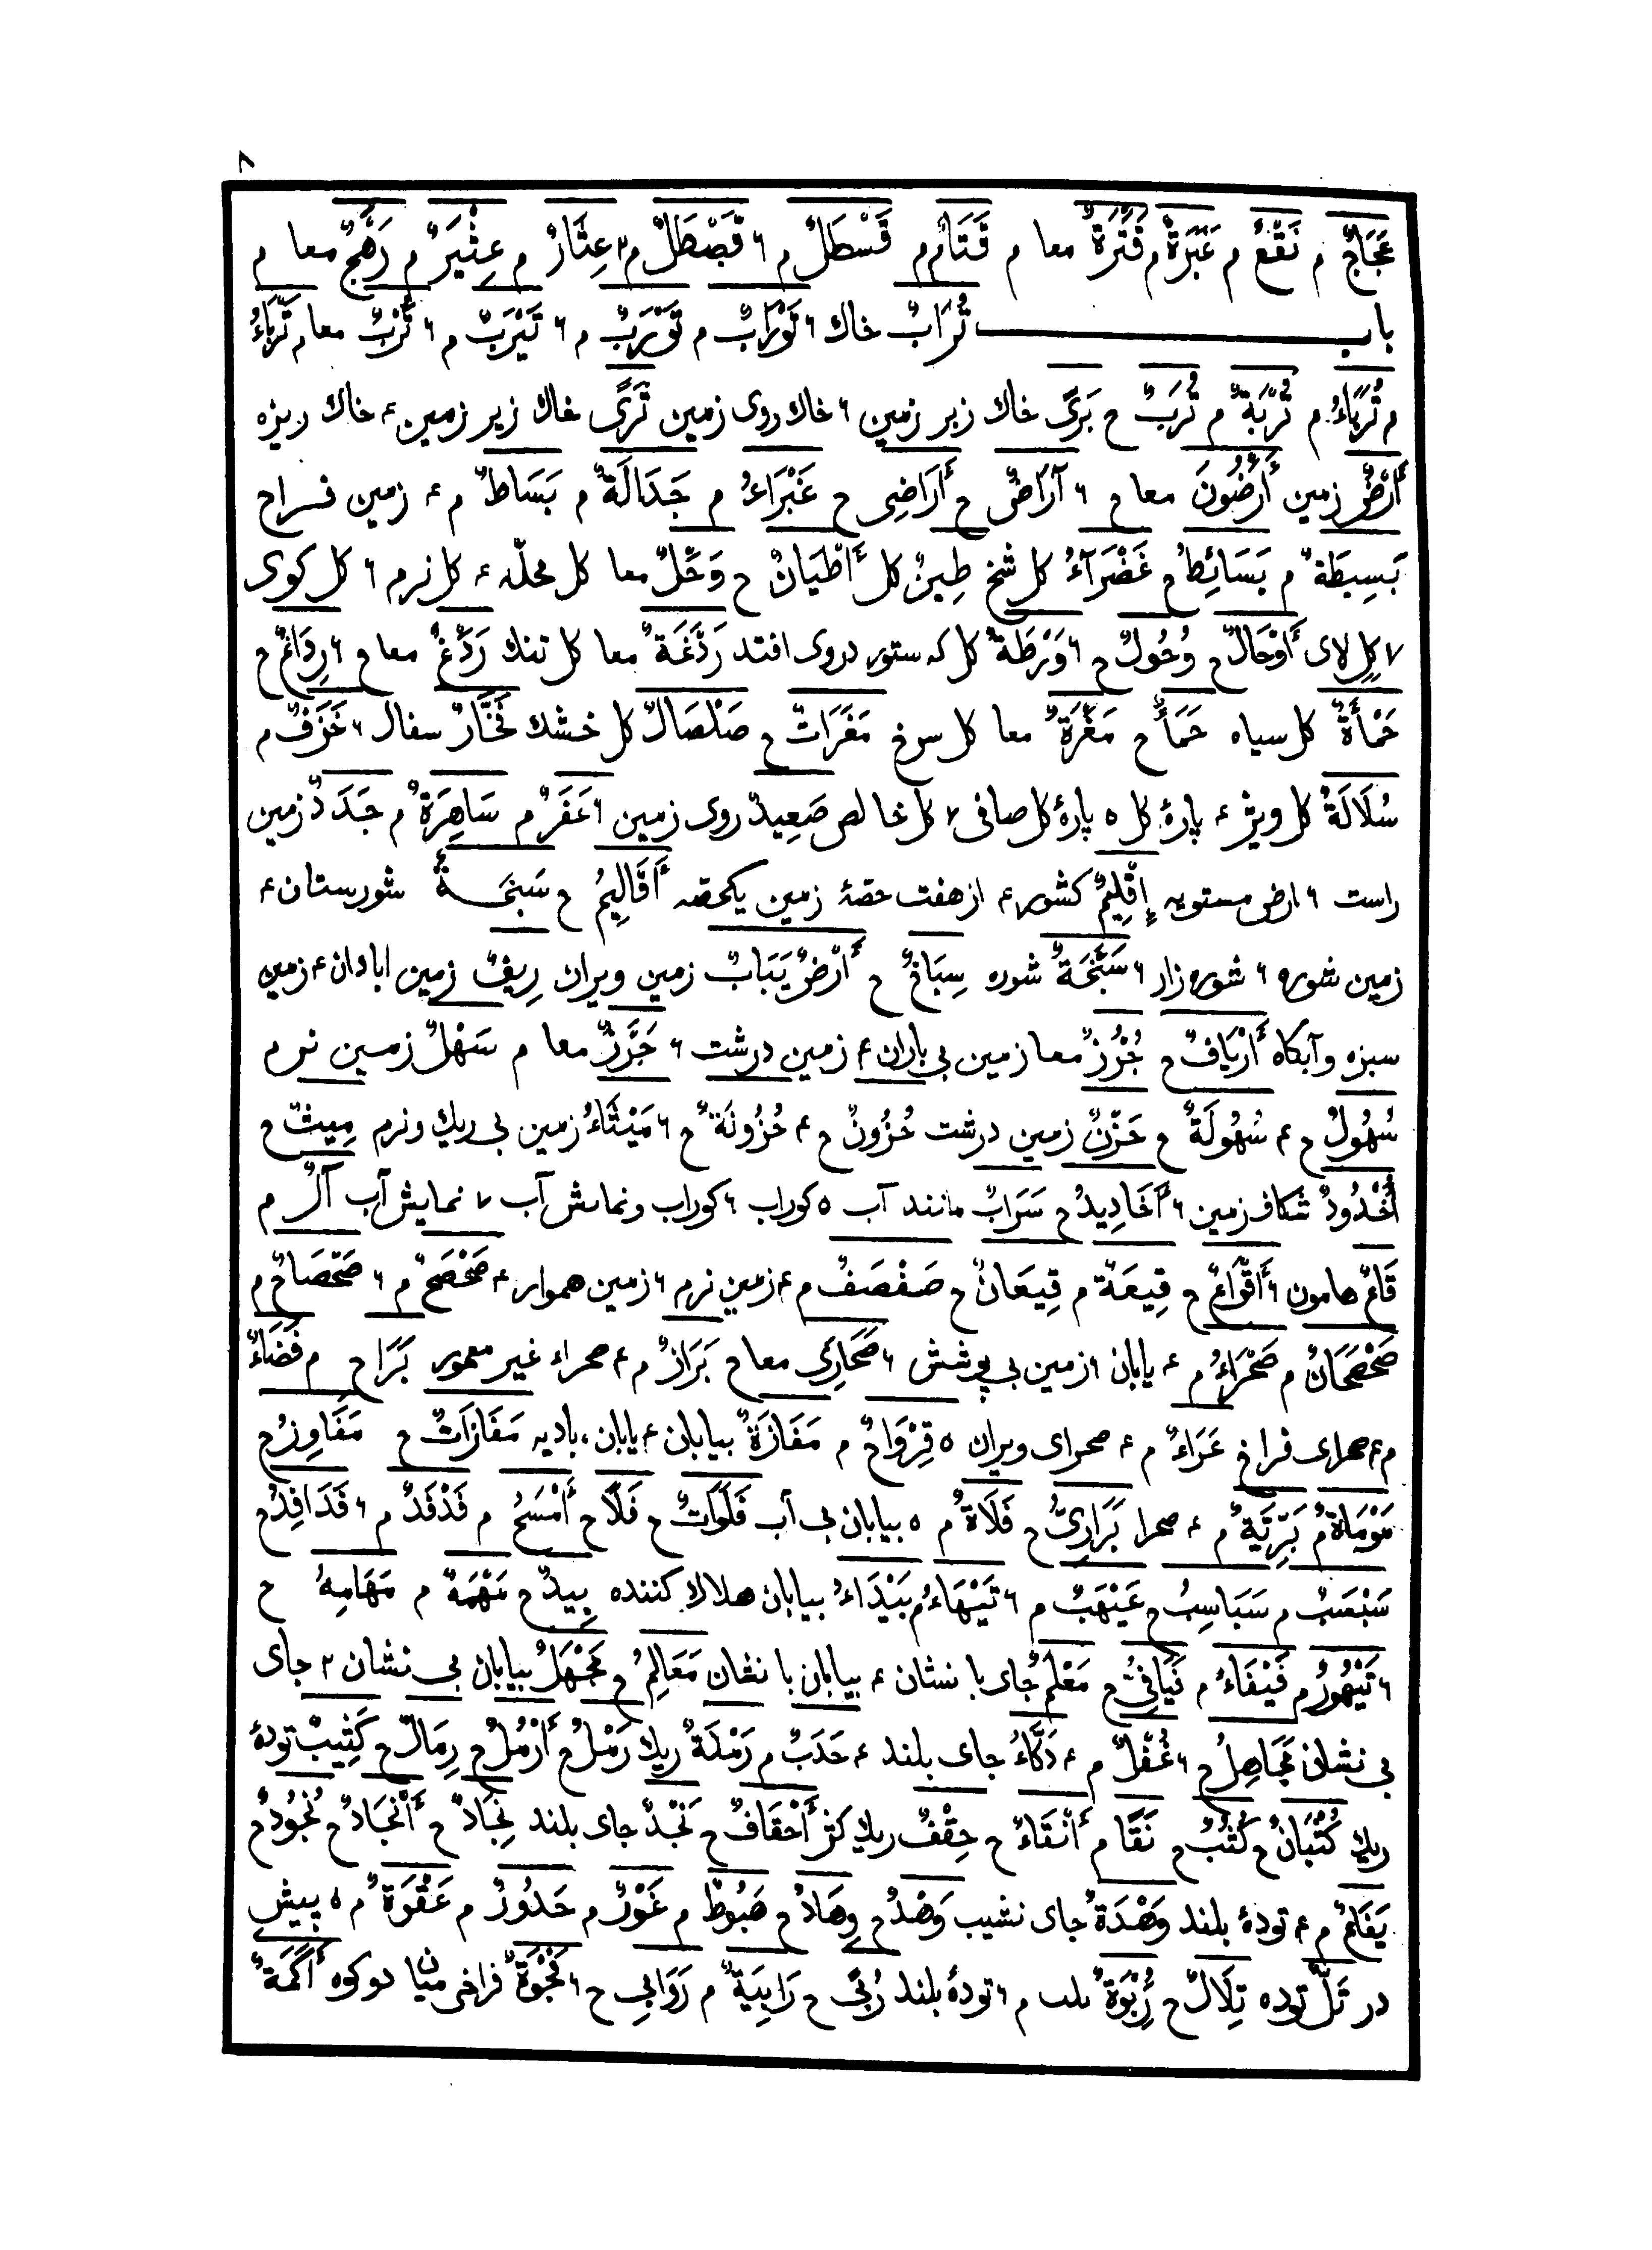 ٨
عَجَاجٌ م نَقْعٌ م غَبَرَةٌ م قَتَرَةٌ معا م قَتَامٌ م قَسْطَلٌ م ٦ قَصْطَلٌ م ٢ عِثَارٌ م عِثْيَرٌ م رَهْجٌ معا م
باب تُرَابٌ خاك ٦ تَوْرَابٌ م تَوْرَبٌ م ٦ تَيْرَبٌ م ٦ تُرْبٌ معا م تَرْبَاءُ
م تُرَبَاءُ م تُرْبَةٌ م تُرَبٌ ح بَرًى خاك زبر زمين ٦ خاك روى زمين ثَرًى خاك زير زمين ۴ خاك ريزه
أَرْضٌ زمين أَرَضُونَ معا ح ٦ آرَاضٌ ح أَرَاضِى ح غَبْرَاءُ م جَدَالَةٌ م بَسَاطٌ م ۴ زمين فراح
بَسِيطَةٌ م بَسَائِطُ ح غَضْرَآءُ كل شخ طِينٌ كل أَطْيَانٌ ح وَحَلٌ معا كل محلّه ۴ كل نرم ٦ كل كوى
٧ كِل لاى أَوْحَالٌ ح وُحُولٌ ح ٦ وَرْطَةٌ كل كه ستور دروى افتد رَدَغَةٌ معا كل تنك رَدْغٌ معا ح ٦ رِدَاغٌ ح
حَمْأَةٌ كل سياه حَمَأٌ ح مَغْرَةٌ معا كل سرخ مَغَرَاتٌ ح صَلْصَالٌ كل خشك فَخَّارٌ سفال ٦ خَزَفٌ م
سُلَالَةٌ كل ويژ ۴ پارۀ كل ٥ پارۀ كل صافى ٧ كل خالص صَعِيدٌ روى زمين ٦ عَفَرٌ م سَاهِرَةٌ م جَدَدٌ زمين
راست ٦ ارض مستويه إِقْلِيمٌ كشور ۴ از هفت حصّۀ زمين يكحصّه أَقَالِيمُ ح سَبْخَةٌ شورستان ۴
زمين شوره ٦ شوره زار ٦ سَبَخَةٌ شوره سِبَاخٌ ح أَرْضٌ يَبَابٌ زمين ويران رِيفٌ زمين ابادان ۴ زمين
سبزه و آبكاه أَرْيَافٌ ح جُرُزٌ معا زمين بى باران ۴ زمين درشت ٦ جَرَزٌ معا م سَهْلٌ زمين نرم
سُهُولٌ ح ۴ سُهُولَةٌ ح حَزْنٌ زمين درشت حُزُونٌ ح ۴ حُزُونَةٌ ح ٦ مَيْثَاءُ زمين بى ريك ونرم مِيثٌ ح
أُخْدُودٌ شكاف زمين ٦ أَخَادِيدُ ح سَرَابٌ مانند آب ٥ كوراب ٦ كوراب ونمايش آب ٧ نمايش آب آلٌ م
قَاعٌ هامون ٦ أَقْوَاعٌ ح قِيعَةٌ م قِيعَانٌ ح صَفْصَفٌ م ۴ زمين نرم ٦ زمين هموار ۴ صَحْصَحٌ م ٦ صَحْصَاحٌ م
صَحْصَحَانٌ م صَحْرَاءُ م ۴ يابان ٦ زمين بى پوشش ٦ صَحَارِىُ معا ح بَرَازٌ م ۴ صحراء غير معمور بَرَاح م فَضَاءٌ
م ۴ صحراى فراخ عَرَاءٌ م ۴ صحراى ويران ٥ قِرْوَاحٌ م مَفَازَةٌ بيابان ۴ يابان، باديه مَفَازَاتٌ ح مَفَاوِزُ ح
مَوْمَاةٌ م بَرِّيَّةٌ م ۴ صحرا بَرَارِىُّ ح فَلَاةٌ م ٥ بيابان بى آب فَلَوَاتٌ ح فَلًا ح أَمْسَحُ م فَدْفَدٌ م ٦ فَدَافِدُ ح
سَبْسَبٌ م سَبَاسِبُ ح غَيْهَبٌ م ٦ تَيْهَاءُ م بَيْدَاءُ بيابان هلاك كننده بِيدٌ ح مَهْمَهٌ م مَهَامِهُ ح
٦ تَيْهُورٌ م فَيْفَاءُ م فَيَافِىُ ح مَعْلَمٌ جاى با نشان ۴ بيابان با نشان مَعَالِمُ ح مَجْهَلٌ بيابان بى نشان ٢ جاى
بى نشان مَجَاهِلُ ح ٦ غُفْلٌ م ۴ دَكَّاءُ جاى بلند ۴ حَدَبٌ م رَمْلَةٌ ريك رَمْلٌ ح أَرْمُلٌ ح رِمَالٌ ح كَثِيبٌ تودۀ
ريك كُثْبَانٌ ح كُثُبٌ ح نَقًا م أَنْقَاءٌ ح حِقْفٌ ريك كثر أَحْقَافٌ ح نَجْدٌ جاى بلند نِجَادٌ ح أَنْجَادٌ ح نُجُودٌ ح
يَفَاعٌ م ۴ تودۀ بلند وَهْدَةٌ جاى نشيب وَهْدٌ ح وِهَادٌ ح هَبُوطٌ م غَوْرٌ م حَدُورٌ م عَقْوَةٌ م ٥ پيش
در تَلٌّ توده تِلَالٌ ح رُبْوَةٌ م ٦ تودۀ بلند رُبًى ح رَابِيَةٌ م رَوَابِى ح ٦ فَجْوَةٌ فراخى ميان دو كوه أَكَمَةٌ